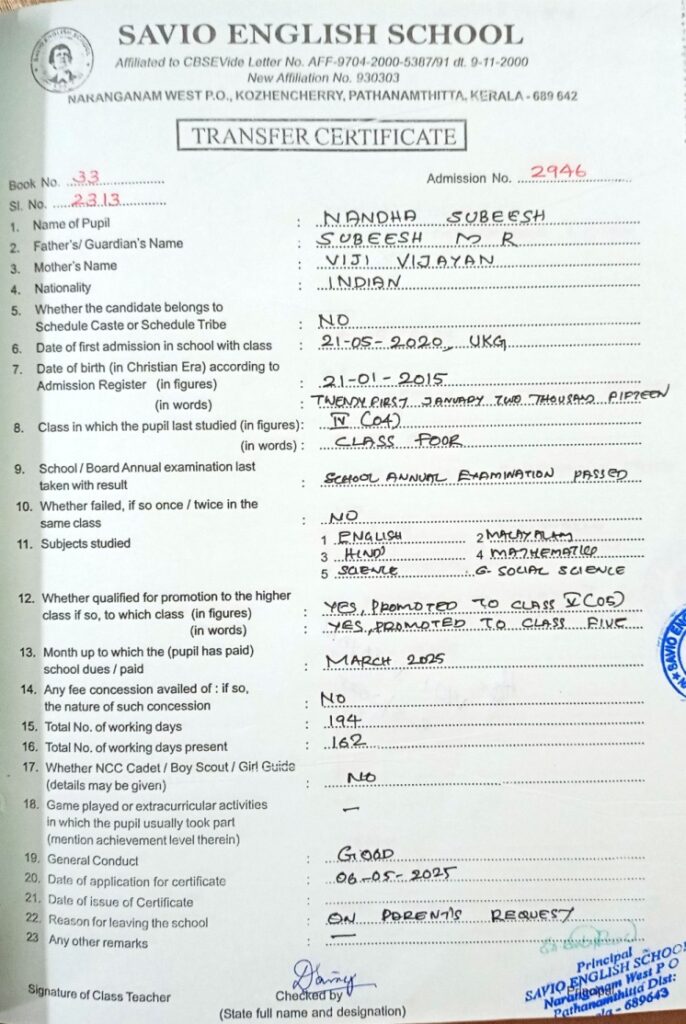 SAVIO ENGLISH SCHOOL
Affiliated to CBSEVide Letter No. AFF-9704-2000-5387/91 dt. 9-11-2000
New Affiliation No. 930303
NARANGANAM WEST P.O., KOZHENCHERRY, PATHANAMTHITTA, KERALA - 689 642
TRANSFER CERTIFICATE
Book No. 33 Admission No. 2946
Sl. No. 2313
1. Name of Pupil : NANDHA SUBEESH
2. Father's/ Guardian's Name : SUBEESH M R
3. Mother's Name : VIJI VIJAYAN
4. Nationality : INDIAN
5. Whether the candidate belongs to
Schedule Caste or Schedule Tribe : NO
6. Date of first admission in school with class : 21-05-2020, UKG
7. Date of birth (in Christian Era) according to
Admission Register (in figures) : 21-01-2015
(in words) : TWENDY FIRST JANUARY TWO THOUSAND FIFTEEN
8. Class in which the pupil last studied (in figures): IV (04)
(in words) : CLASS FOOR
9. School / Board Annual examination last
taken with result : SCHOOL ANNUAL EXAMINATION PASSED
10. Whether failed, if so once / twice in the
same class : NO
11. Subjects studied 1 ENGLISH 2 MALAYALAM
3 HINDI 4 MATHEMATICS
5 SCIENCE 6- SOCIAL SCIENCE
12. Whether qualified for promotion to the higher
class if so, to which class (in figures) : YES, PROMOTED TO CLASS V (05)
(in words) : YES, PROMOTED TO CLASS FIVE
13. Month up to which the (pupil has paid)
school dues / paid : MARCH 2025
14. Any fee concession availed of : if so,
the nature of such concession : NO
15. Total No. of working days : 194
16. Total No. of working days present : 162
17. Whether NCC Cadet / Boy Scout / Girl Guide
(details may be given) : NO
18. Game played or extracurricular activities
in which the pupil usually took part : —
(mention achievement level therein)
19. General Conduct : GOOD
20. Date of application for certificate : 06-05-2025
21. Date of issue of Certificate :
22. Reason for leaving the school : ON PARENT'S REQUEST
23 Any other remarks : —
Signature of Class Teacher
Checked by
(State full name and designation)
Principal
Principal
SAVIO ENGLISH SCHOOL
Naranganam West P O
Pathanamthitta Dist:
la - 689643
SAVIO EN